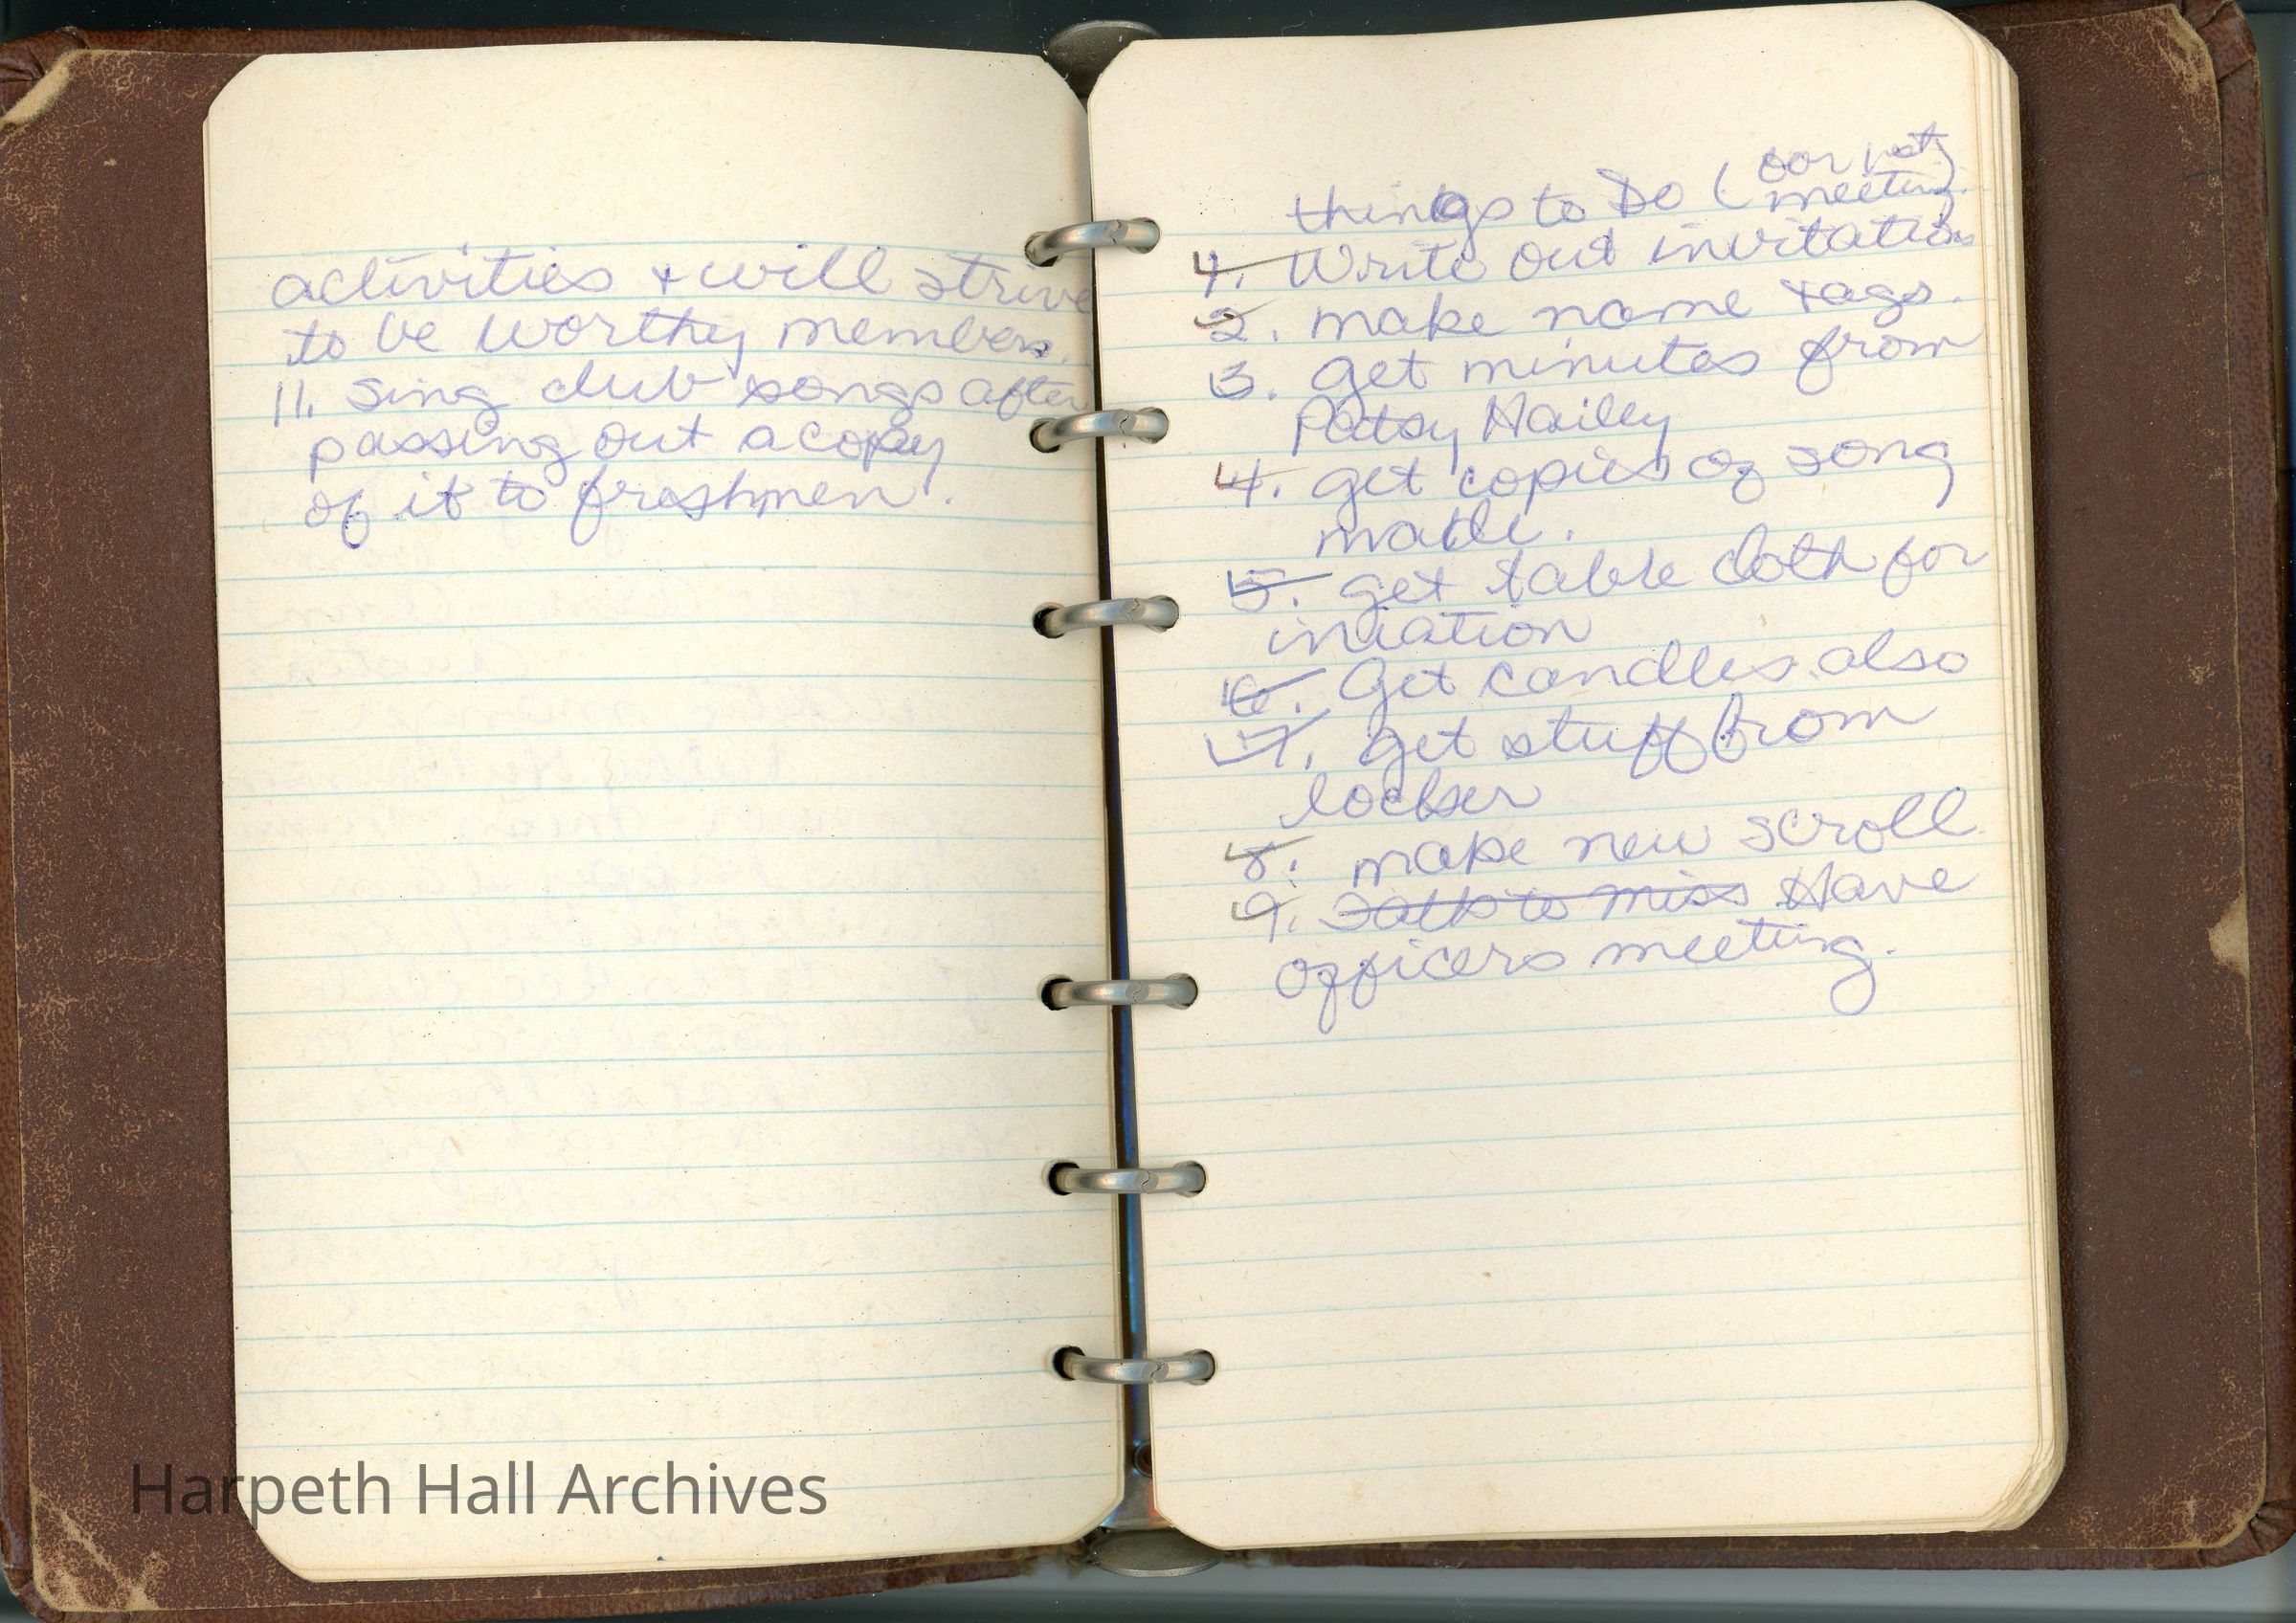 activities + will strive
to be worthy members.
11. Sing club songs after
passing out a copy
of it to freshmen.
things to Do (for 1st
meeting)
1. Write out invitations
2. make name tags.
3. get minutes from
Patsy Hailey
4. get copies of song
made.
5. get table cloth for
iniation
6. Get candles also
7. get stuff from
locker
8. make new scroll
9. Talk to Miss Have
officers meeting.
Harpeth Hall Archives